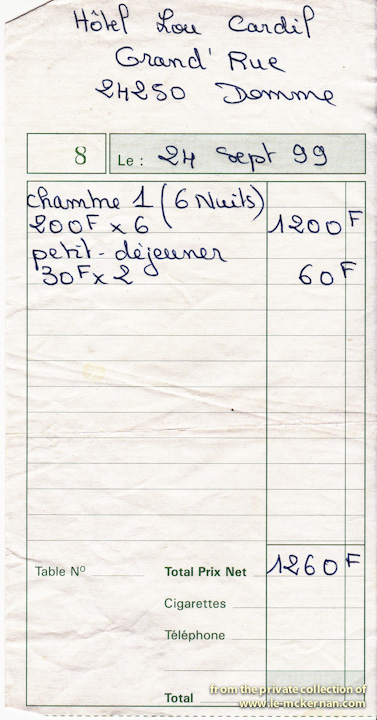 Hôtel Lou Cardil
Grand' Rue
24250 Domme
8 Le : 24 Sept 99
chambre 1 (6 Nuits)
200F x 6 1200F
petit-déjeuner
30F x 2 60F
Table N° Total Prix Net 1260F
Cigarettes
Téléphone
Total
from the private collection of
www.le-mckernan.com